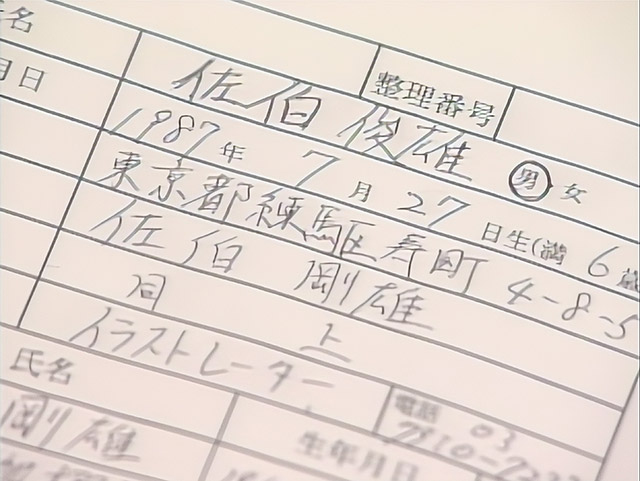 名 佐伯 俊雄 整理番号
月日 1987年 7月 27日生(満 6歳 男 女
東京都練馬区寿町 4-8-5
佐伯 剛雄
同 上
イラストレーター
氏名 電話 03
剛雄 生年月日